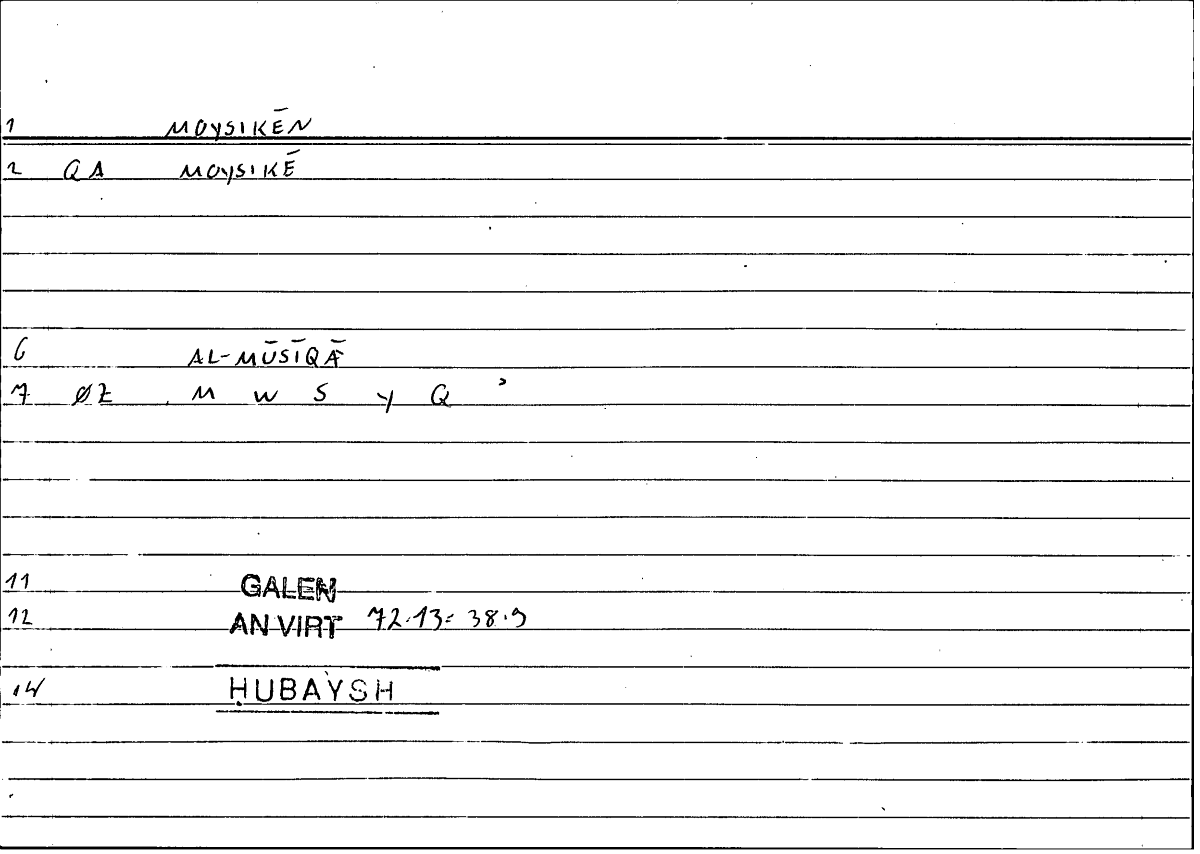 1 MOYSIKĒN
2 QA MOYSIKĒ
6 AL-MŪSĪQĀ
7 ØZ M W S Y Q ʾ
11 GALEN
12 AN VIRT 72.13 = 38.9
14 ḤUBAYSH